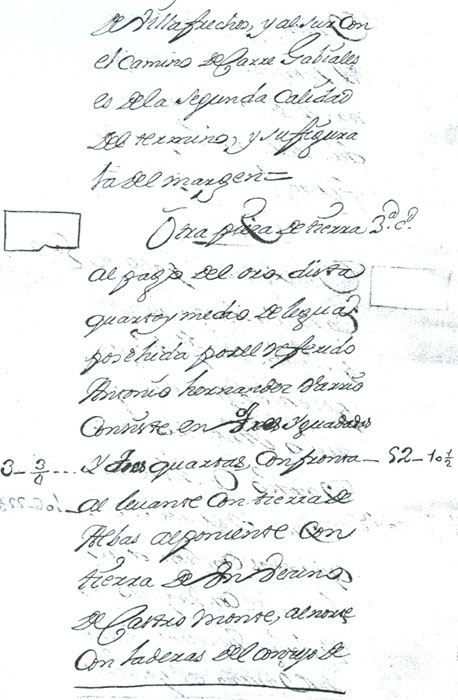 de Villafrechos, y al sur con
el camino de Carre Gatiales
es de la segunda calidad
del termino, y su fegura
la del margen =
Otra pieza de tierra 3.ª c.ᵈ
al pago del oro, dista
quarto y medio de legua
posehida por el referido
Antonio hernandez Barrio
Consiste en tres Yguadas
3 - 3/4 .... Y tres quartas, Confronta - 52 - 10 1/2
al levante con tierra de
Albas al poniente Con
tierra de Un Vecino
de Castro Monte, al norte
Con laderas del conzejo de